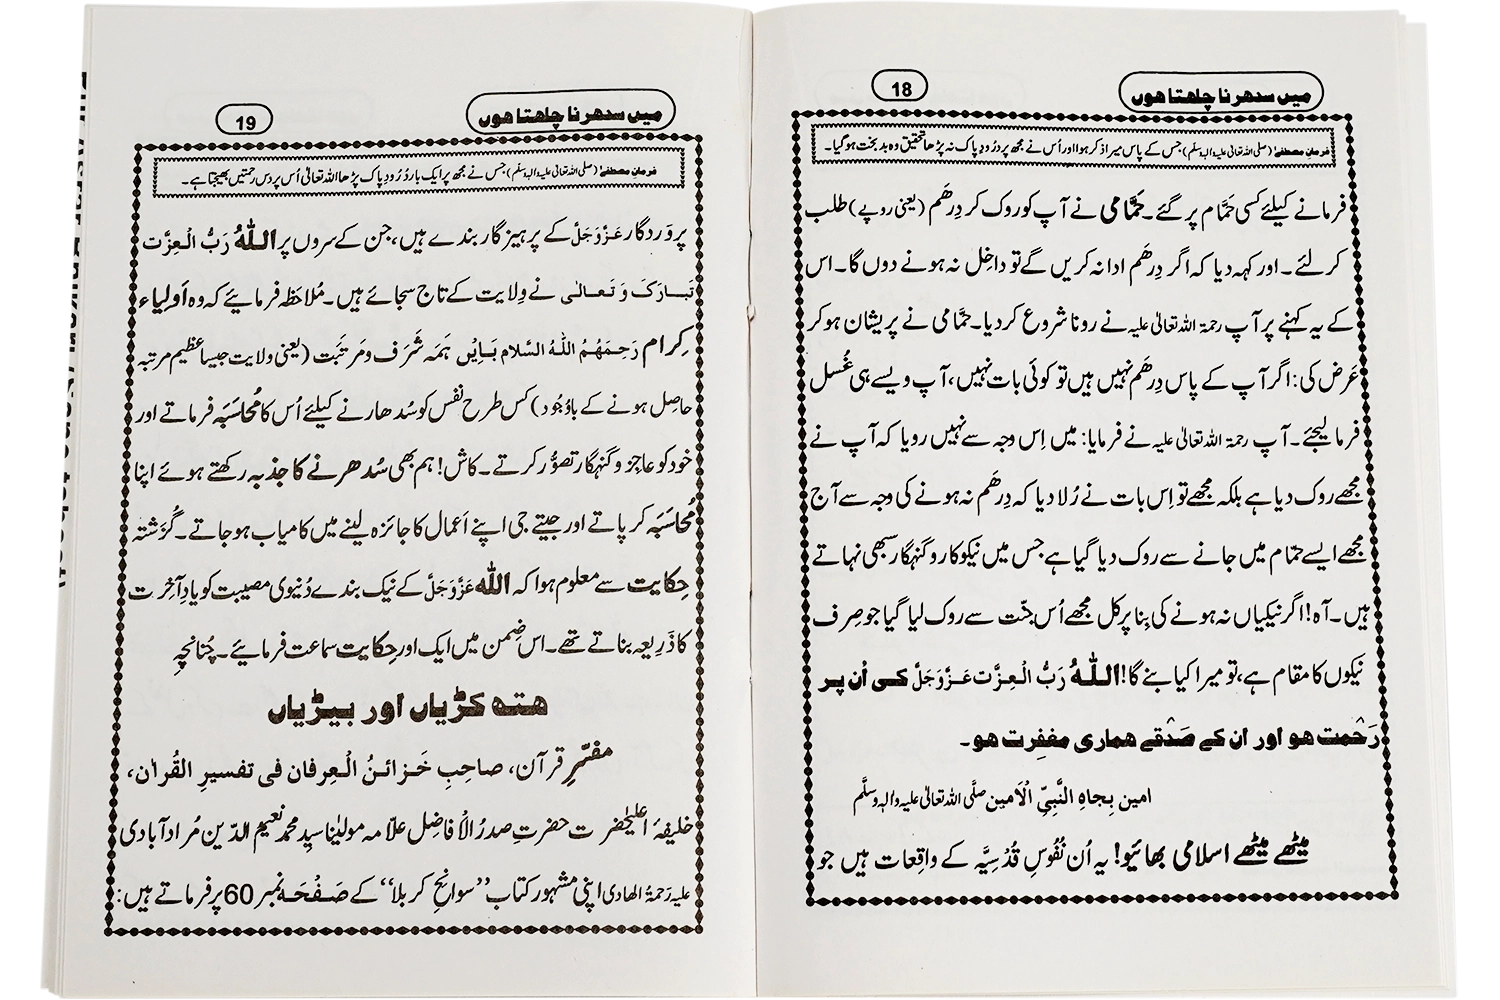 میں سدھرنا چاہتا ہوں
18
فرمانِ مصطفےٰ (صلی اللہ تعالیٰ علیہ والہ وسلم) جس کے پاس میرا ذکر ہوا اور اُس نے مجھ پر دُرُودِ پاک نہ پڑھا تحقیق وہ بدبخت ہو گیا۔
فرمانے کیلئے کسی حَمَّام پر گئے۔ حَمَّامی نے آپ کو روک کر دِرھَم (یعنی روپے) طلب
کر لئے۔ اور کہہ دیا کہ اگر دِرھَم ادا نہ کریں گے تو داخِل نہ ہونے دوں گا۔ اس
کے یہ کہنے پر آپ رحمۃ اللہ تعالیٰ علیہ نے رونا شروع کر دیا۔ حَمَّامی نے پریشان ہو کر
عَرض کی: اگر آپ کے پاس دِرھَم نہیں ہیں تو کوئی بات نہیں، آپ ویسے ہی غُسل
فرما لیجئے۔ آپ رحمۃ اللہ تعالیٰ علیہ نے فرمایا: میں اِس وجہ سے نہیں رویا کہ آپ نے
مجھے روک دیا ہے بلکہ مجھے تو اِس بات نے رُلا دیا کہ دِرھَم نہ ہونے کی وجہ سے آج
مجھے ایسے حمّام میں جانے سے روک دیا گیا ہے جس میں نیکو کار و گنہگار سبھی نہاتے
ہیں۔ آہ! اگر نیکیاں نہ ہونے کی بِنا پر کل مجھے اُس جنّت سے روک لیا گیا جو صِرف
نیکوں کا مقام ہے، تو میرا کیا بنے گا! اللہُ رَبُّ الْعِزَّت عَزَّوَجَلَّ کی اُن پر
رَحْمت ہو اور ان کے صَدْقے ہماری مغفِرت ہو۔
امین بِجاہِ النَّبِیِّ الْاَمین صلَّی اللہ تعالیٰ علیہ واٰلہٖ وسلَّم
میٹھے میٹھے اسلامی بھائیو! یہ اُن نُفُوسِ قُدْسِیَّہ کے واقِعات ہیں جو
میں سدھرنا چاہتا ہوں
19
فرمانِ مصطفےٰ (صلی اللہ تعالیٰ علیہ والہ وسلم) جس نے مجھ پر ایک بار دُرُودِ پاک پڑھا اللہ تعالیٰ اُس پر دس رحمتیں بھیجتا ہے۔
پروَردگار عَزَّوَجَلَّ کے پرہیز گار بندے ہیں، جن کے سروں پر اللہُ رَبُّ الْعِزَّت
تَبارَکَ وَ تَعالٰی نے وِلایت کے تاج سجائے ہیں۔ مُلاحَظہ فرمائیے کہ وہ اَولیاءِ
کِرام رَحِمَھُمُ اللہُ السَّلام بَایں ہَمَہ شَرَف و مَرتَبَت (یعنی ولایت جیسا عظیم مرتبہ
حاصِل ہونے کے باوُجُود) کس طرح نفس کو سُدھارنے کیلئے اُس کا مُحاسَبَہ فرماتے اور
خود کو عاجِز و گنہگار تصوُّر کرتے۔ کاش! ہم بھی سُدھرنے کا جذبہ رکھتے ہوئے اپنا
مُحاسَبَہ کر پاتے اور جیتے جی اپنے اَعمال کا جائزہ لینے میں کامیاب ہو جاتے۔ گُزَشتہ
حِکایت سے معلوم ہوا کہ اللہ عَزَّوَجَلَّ کے نیک بندے دُنیوی مصیبت کو یادِ آخِرت
کا ذَرِیعہ بناتے تھے۔ اس ضِمن میں ایک اور حِکایت سماعت فرمائیے۔ چُنانچِہ
ہتھ کڑیاں اور بیڑیاں
مفسّرِ قرآن، صاحِبِ خَزائنُ الْعِرفان فی تفسیرِ القُراٰن،
خلیفۂ اعلیٰحضرت حضرتِ صدرُ الْاَفاضِل علّامہ مولیٰنا سیِّد محمد نعیم الدّین مُراد آبادی
علیہ رَحمۃُ الھادی اپنی مشہور کتاب "سوانحِ کربلا" کے صَفْحَہ نمبر 60 پر فرماتے ہیں: